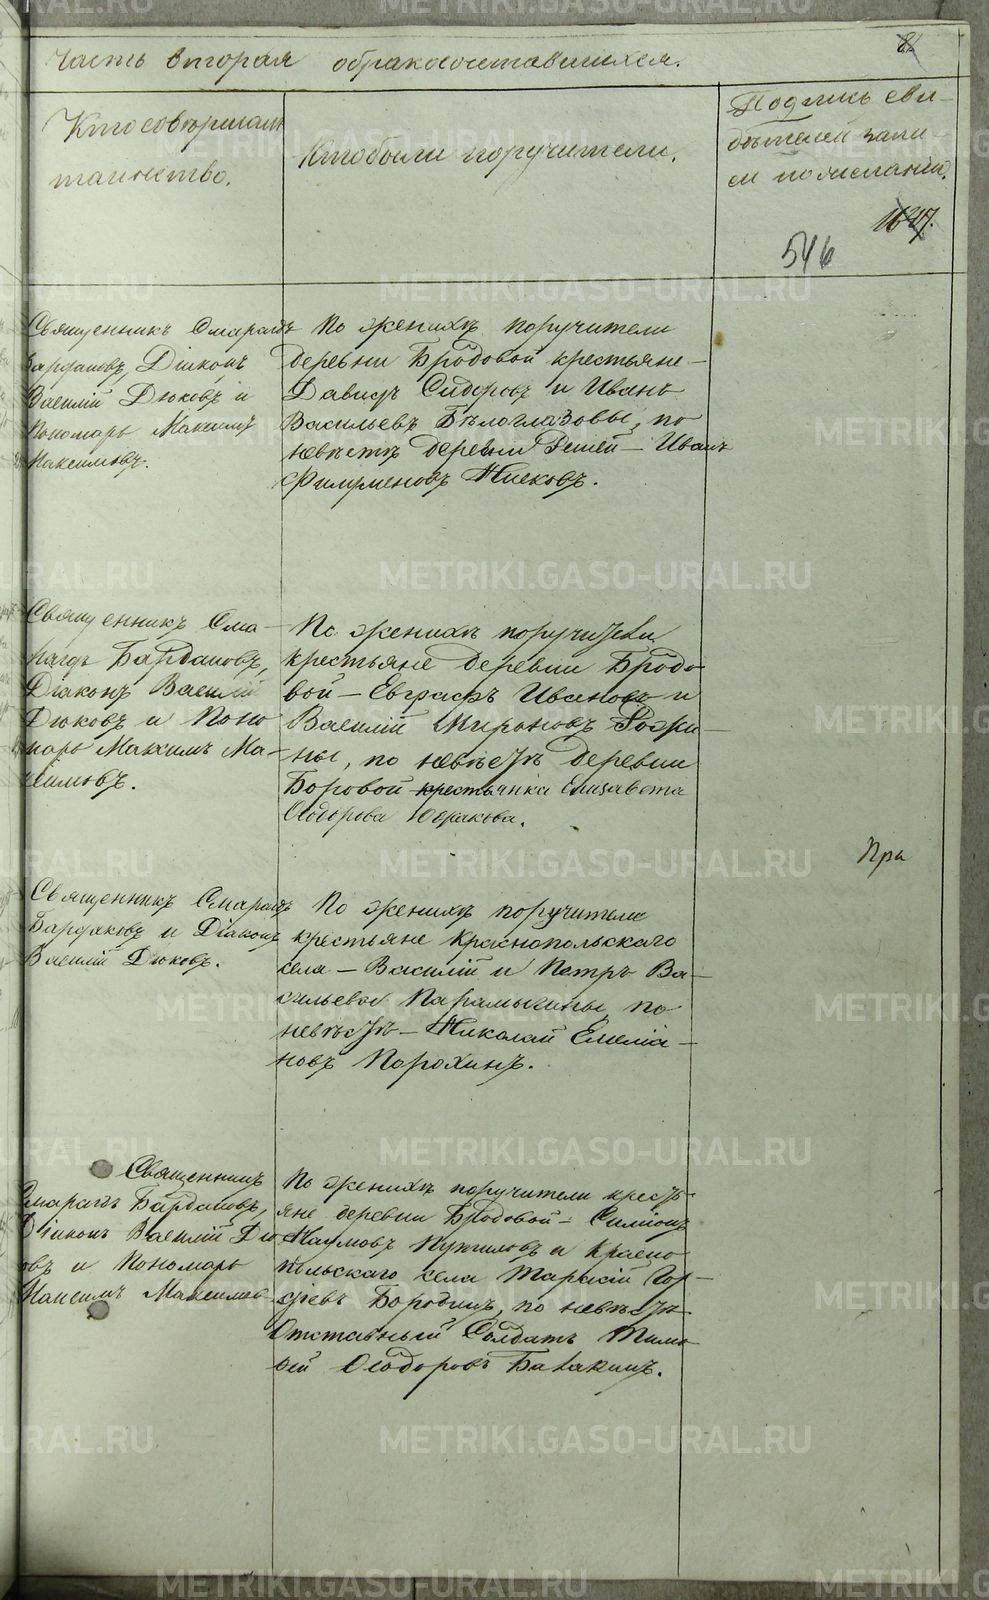 Часть вторая о бракосочетавшихся.
Кто совершалъ
таинство.
Кто были поручители.
Подпись сви-
дѣтелей запи-
си по желанію.
546
Священникъ Смарагдъ
Бардаковъ, Діаконъ
Василій Дюковъ и
Пономарь Максимъ
Максимовъ.
По женихѣ поручители
деревни Бродовой крестьяне –
Давидъ Сидоровъ и Иванъ
Васильевъ Бѣлоглазовы, по
невѣстѣ деревни – Иванъ
Филимоновъ
Священникъ Сма-
рагдъ Бардаковъ,
Діаконъ Василій
Дюковъ и Поно
марь Максимъ Ма-
ксимовъ.
По женихѣ поручители
крестьяне деревни Бродо
вой – Евграфъ Ивановъ и
Василій Мироновъ
ны, по невѣстѣ деревни
Боровой крестьянка Елизавета
Ѳеодорова
При
Священникъ Смарагдъ
Бардаковъ и Діаконъ
Василій Дюковъ.
По женихѣ поручители
крестьяне Краснопольскаго
села – Василій и Петръ Ва-
сильевы Парамыгины, по
невѣстѣ – Николай Емеліа-
новъ Порохинъ.
Священникъ
Смарагдъ Бардаковъ,
Діаконъ Василій Дю
овъ и Пономарь
Максимъ Максимов
По женихѣ поручители кресть-
яне деревни Бродовой – Симіонъ
Наумовъ и Красно
польскаго села
Бородинъ, по невѣстѣ
Отставный Солдатъ Тимо
ѳей Ѳеодоровъ Балакинъ.
METRIKI.GASO-URAL.RU